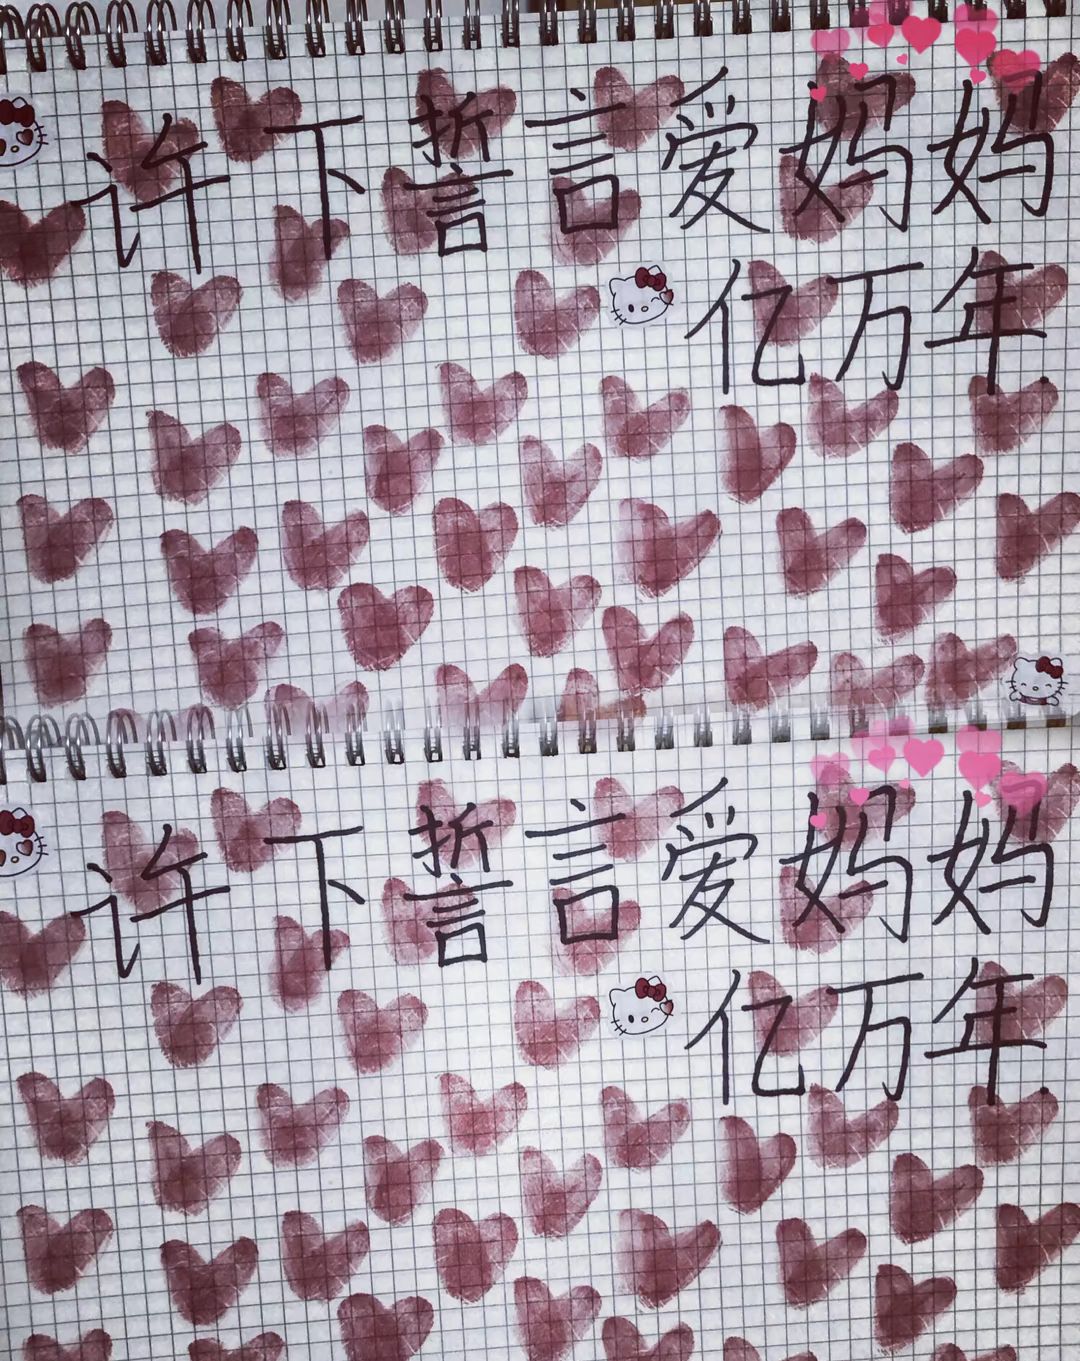 许下誓言爱妈妈
亿万年.
许下誓言爱妈妈
亿万年.